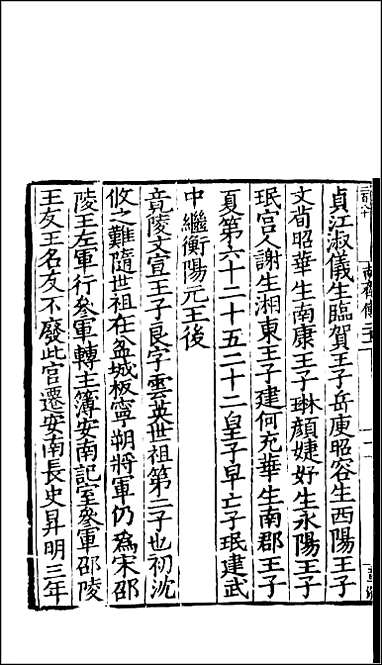 貞江淑儀生臨賀王子岳庾昭容生西陽王子
文荀昭華生南康王子琳顔婕妤生永陽王子
珉宫人謝生湘東王子建何充華生南郡王子
夏第六十二十五二十二皇子早亡子珉建武
中繼衡陽元王後
竟陵文宣王子良字雲英世祖第二子也初沈
攸之難隨世祖在盆城板寧朔將軍仍爲宋邵
陵王左軍行參軍轉主簿安南記室參軍邵陵
王友王名友不廢此官遷安南長史昇明三年